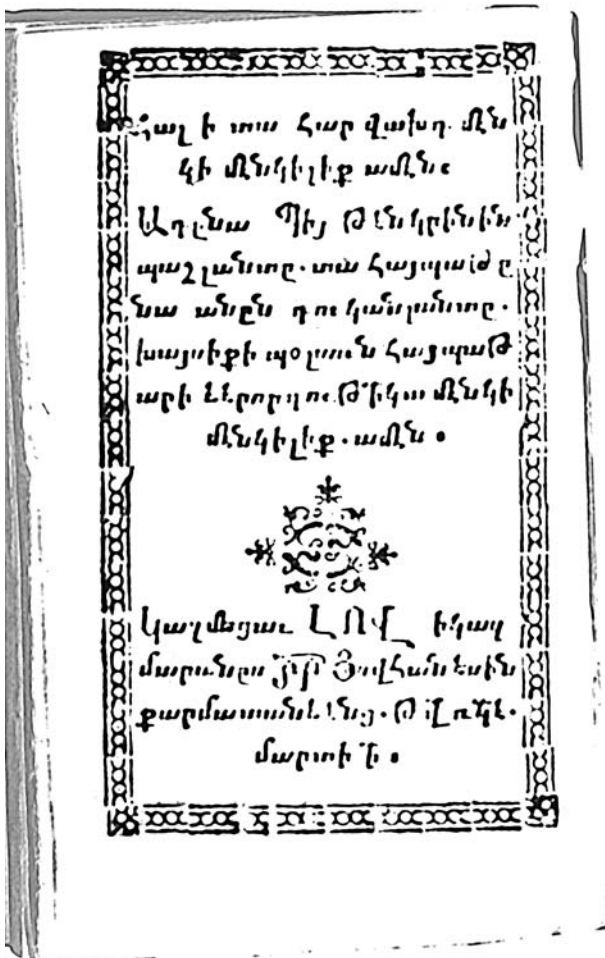 Հալ ի տա Հար վախդ. մէն
կի մէնկիլիք ամէն։
Աղընա Պիյ Թէնկրինին
պաշլանտը. տա Հայպաթ ը
նա անըն դուկանլանտը.
խայսիքի պօլսուն Հայպաթ
արի էէրորդութ՟իկա մէնկի
մէնկիլիք. ամէն.
Կազմեցաւ ԼՈՎ իկազ
մարանըս յր Յովհաննէսին
քարմատանենց. Թվ. ռկէ.
մարտի ի.